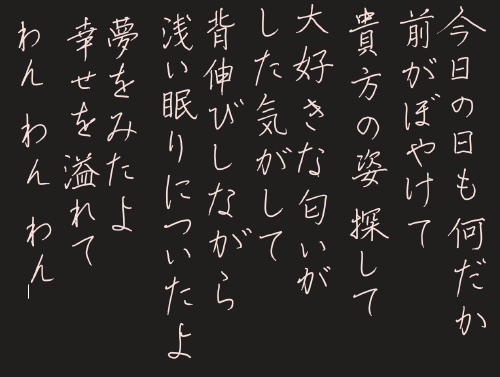 今日の日も何だか
前がぼやけて
貴方の姿探して
大好きな匂いが
した気がして
背伸びしながら
浅い眠りについたよ
夢をみたよ
幸せを溢れて
わん わん わん